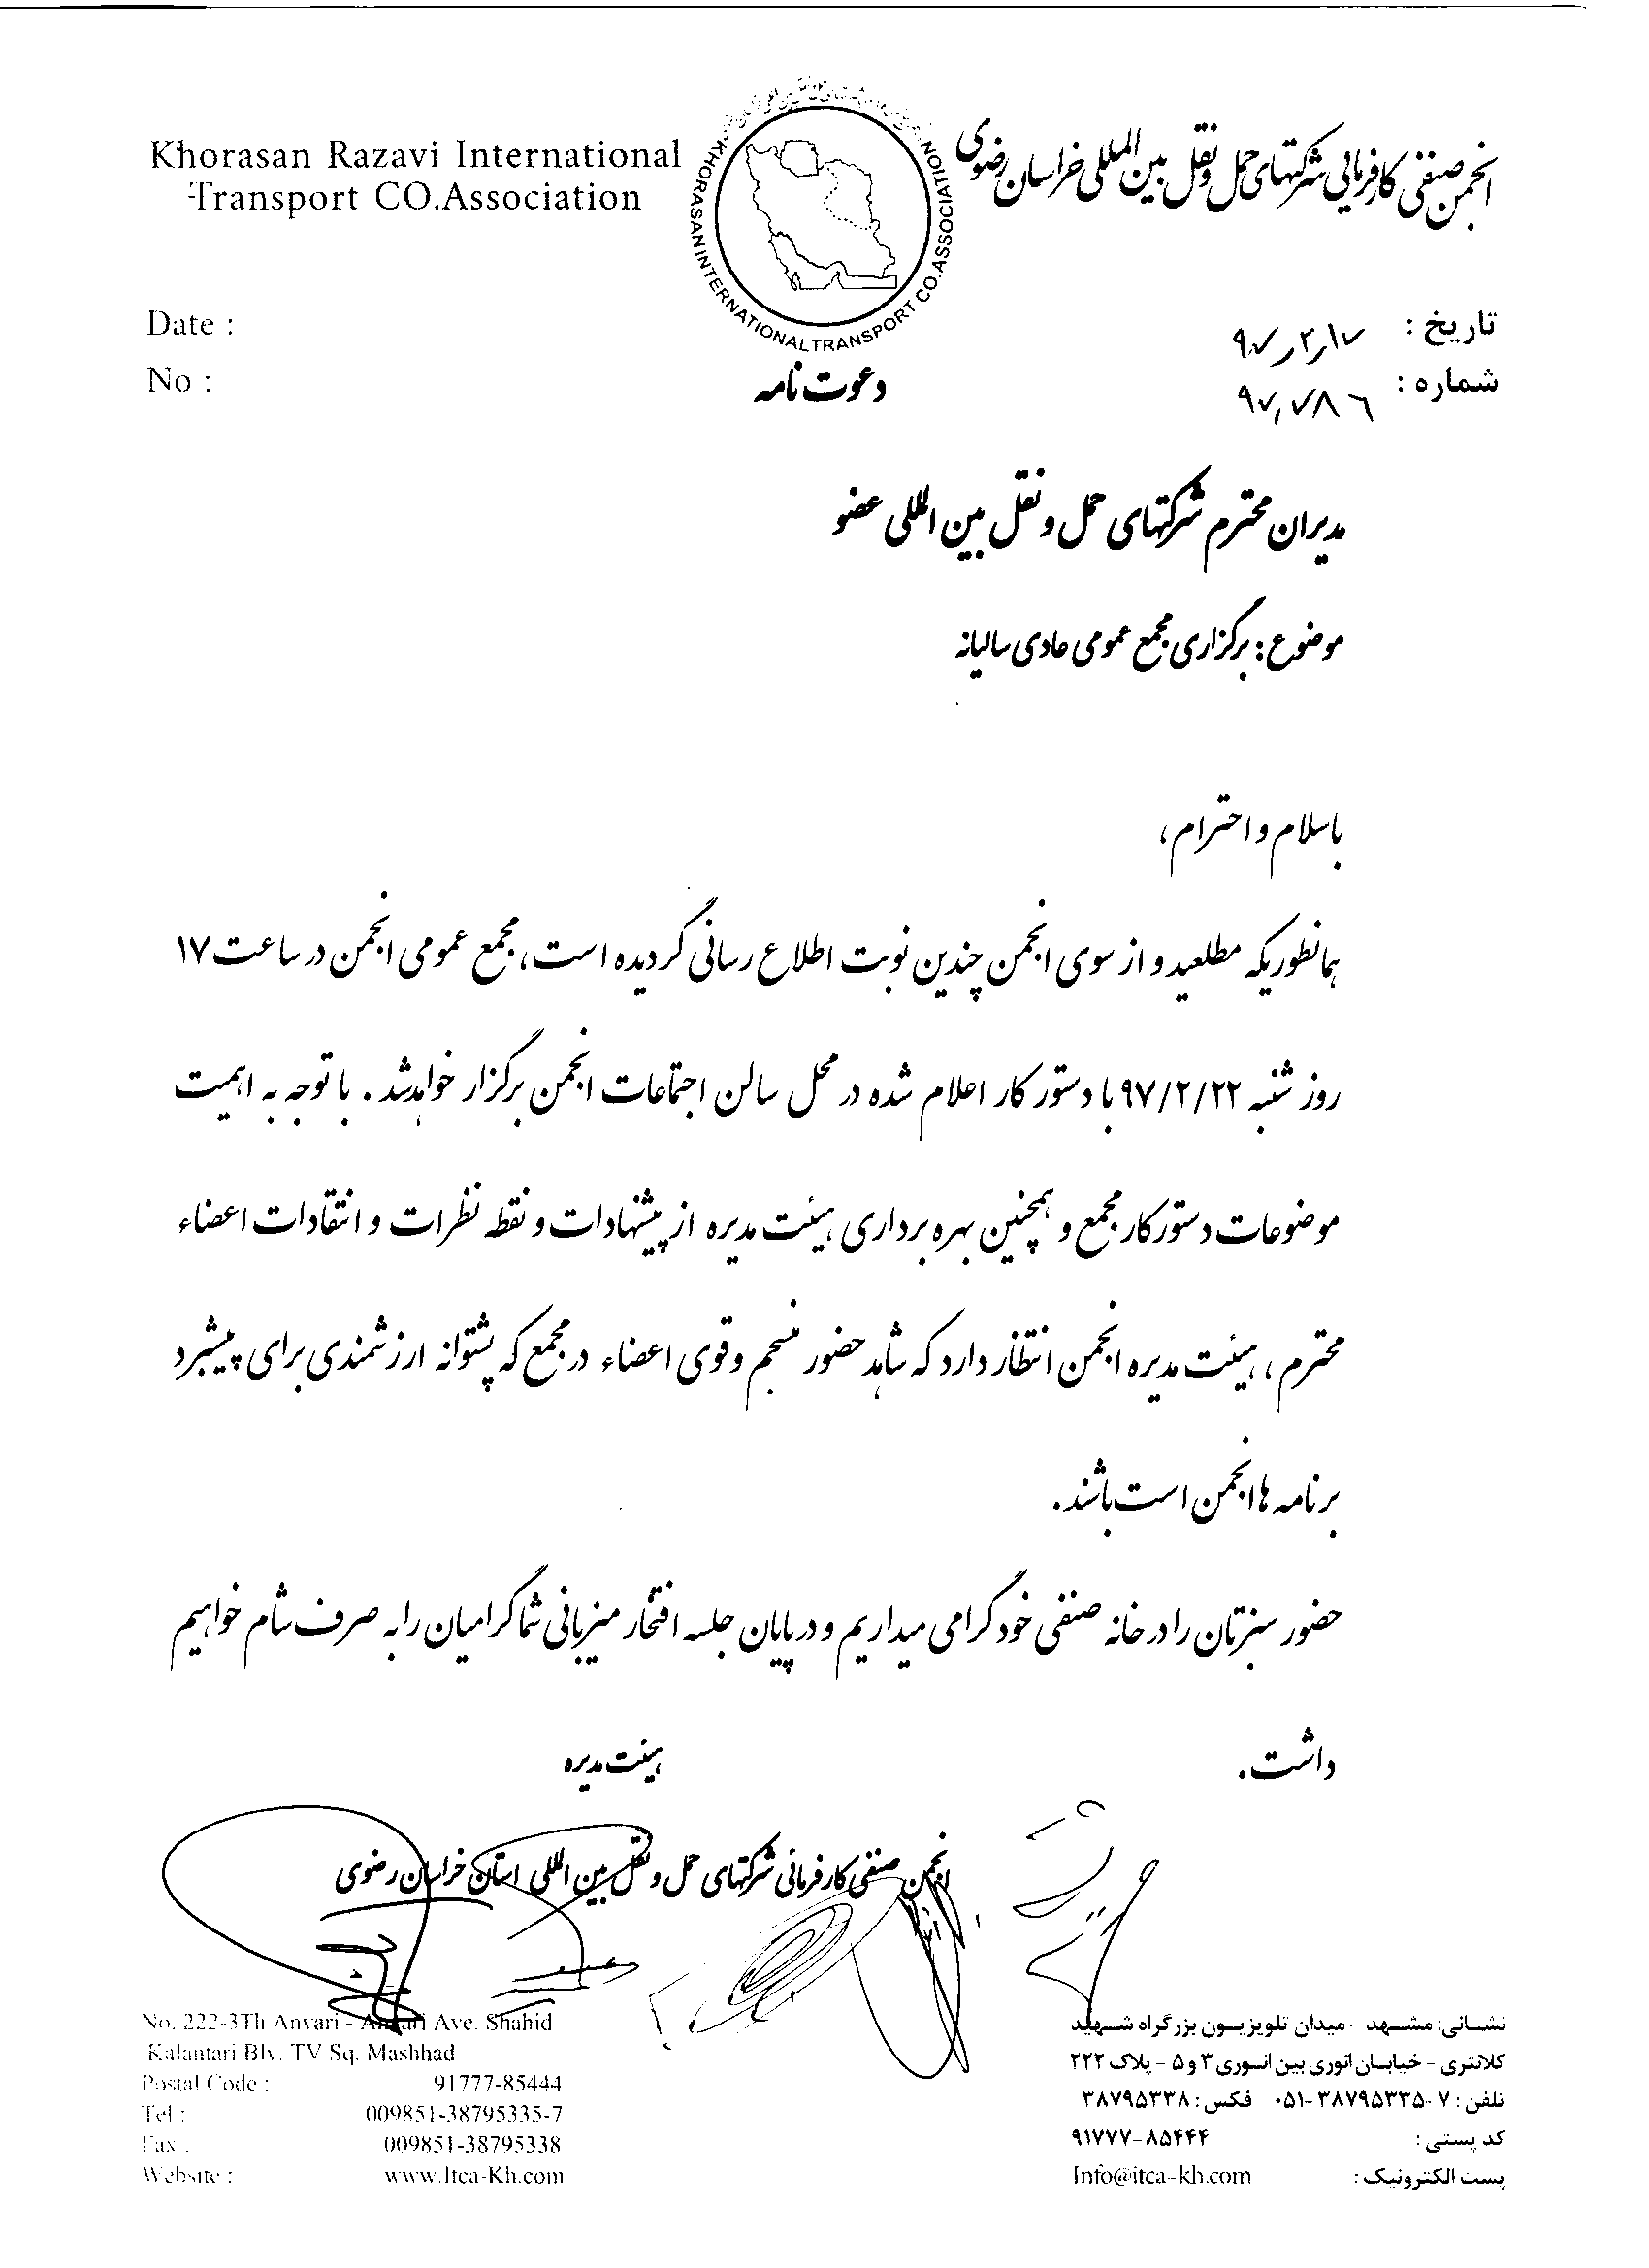 Khorasan Razavi International
Transport CO.Association
انجمن صنفی کارفرمایی شرکتهای حمل و نقل بین المللی خراسان رضوی
KHORASAN INTERNATIONAL TRANSPORT CO.ASSOCIATION
Date :
No :
تاریخ : ۹۷٫۲٫۱۷
شماره : ۹۷٫۷۸۶
دعوت نامه
مدیران محترم شرکتهای حمل و نقل بین المللی عضو
موضوع: برگزاری مجمع عمومی عادی سالیانه
با سلام و احترام،
همانطوریکه مطلعید و از سوی انجمن چندین نوبت اطلاع رسانی گردیده است، مجمع عمومی انجمن در ساعت ۱۷
روز شنبه ۹۷/۲/۲۲ با دستور کار اعلام شده در محل سالن اجتماعات انجمن برگزار خواهدشد. با توجه به اهمیت
موضوعات دستور کار مجمع و همچنین بهره برداری هیئت مدیره از پیشنهادات و نقطه نظرات و انتقادات اعضاء
محترم ، هیئت مدیره انجمن انتظار دارد که شاهد حضور منسجم و قوی اعضاء در مجمع که پشتوانه ارزشمندی برای پیشبرد
برنامه ها انجمن است باشند.
حضور سبزتان را در خانه صنفی خود گرامی میداریم و در پایان جلسه افتخار میزبانی شما گرامیان را به صرف شام خواهیم
داشت.
هیئت مدیره
انجمن صنفی کارفرمائی شرکتهای حمل و نقل بین المللی استان خراسان رضوی
No. 222-3Th Anvari - Anvari Ave. Shahid
Kalantari Blv. TV Sq. Mashhad
Postal Code : 91777-85444
Tel : 009851-38795335-7
Fax : 009851-38795338
Website : www.Itca-Kh.com
نشانی: مشهد - میدان تلویزیون بزرگراه شهید
کلانتری - خیابان انوری بین انوری ۳ و ۵ - پلاک ۲۲۲
تلفن : ۷-۳۸۷۹۵۳۳۵-۰۵۱ فکس : ۳۸۷۹۵۳۳۸
کد پستی : ۹۱۷۷۷-۸۵۴۴۴
پست الکترونیک : Info@itca-kh.com